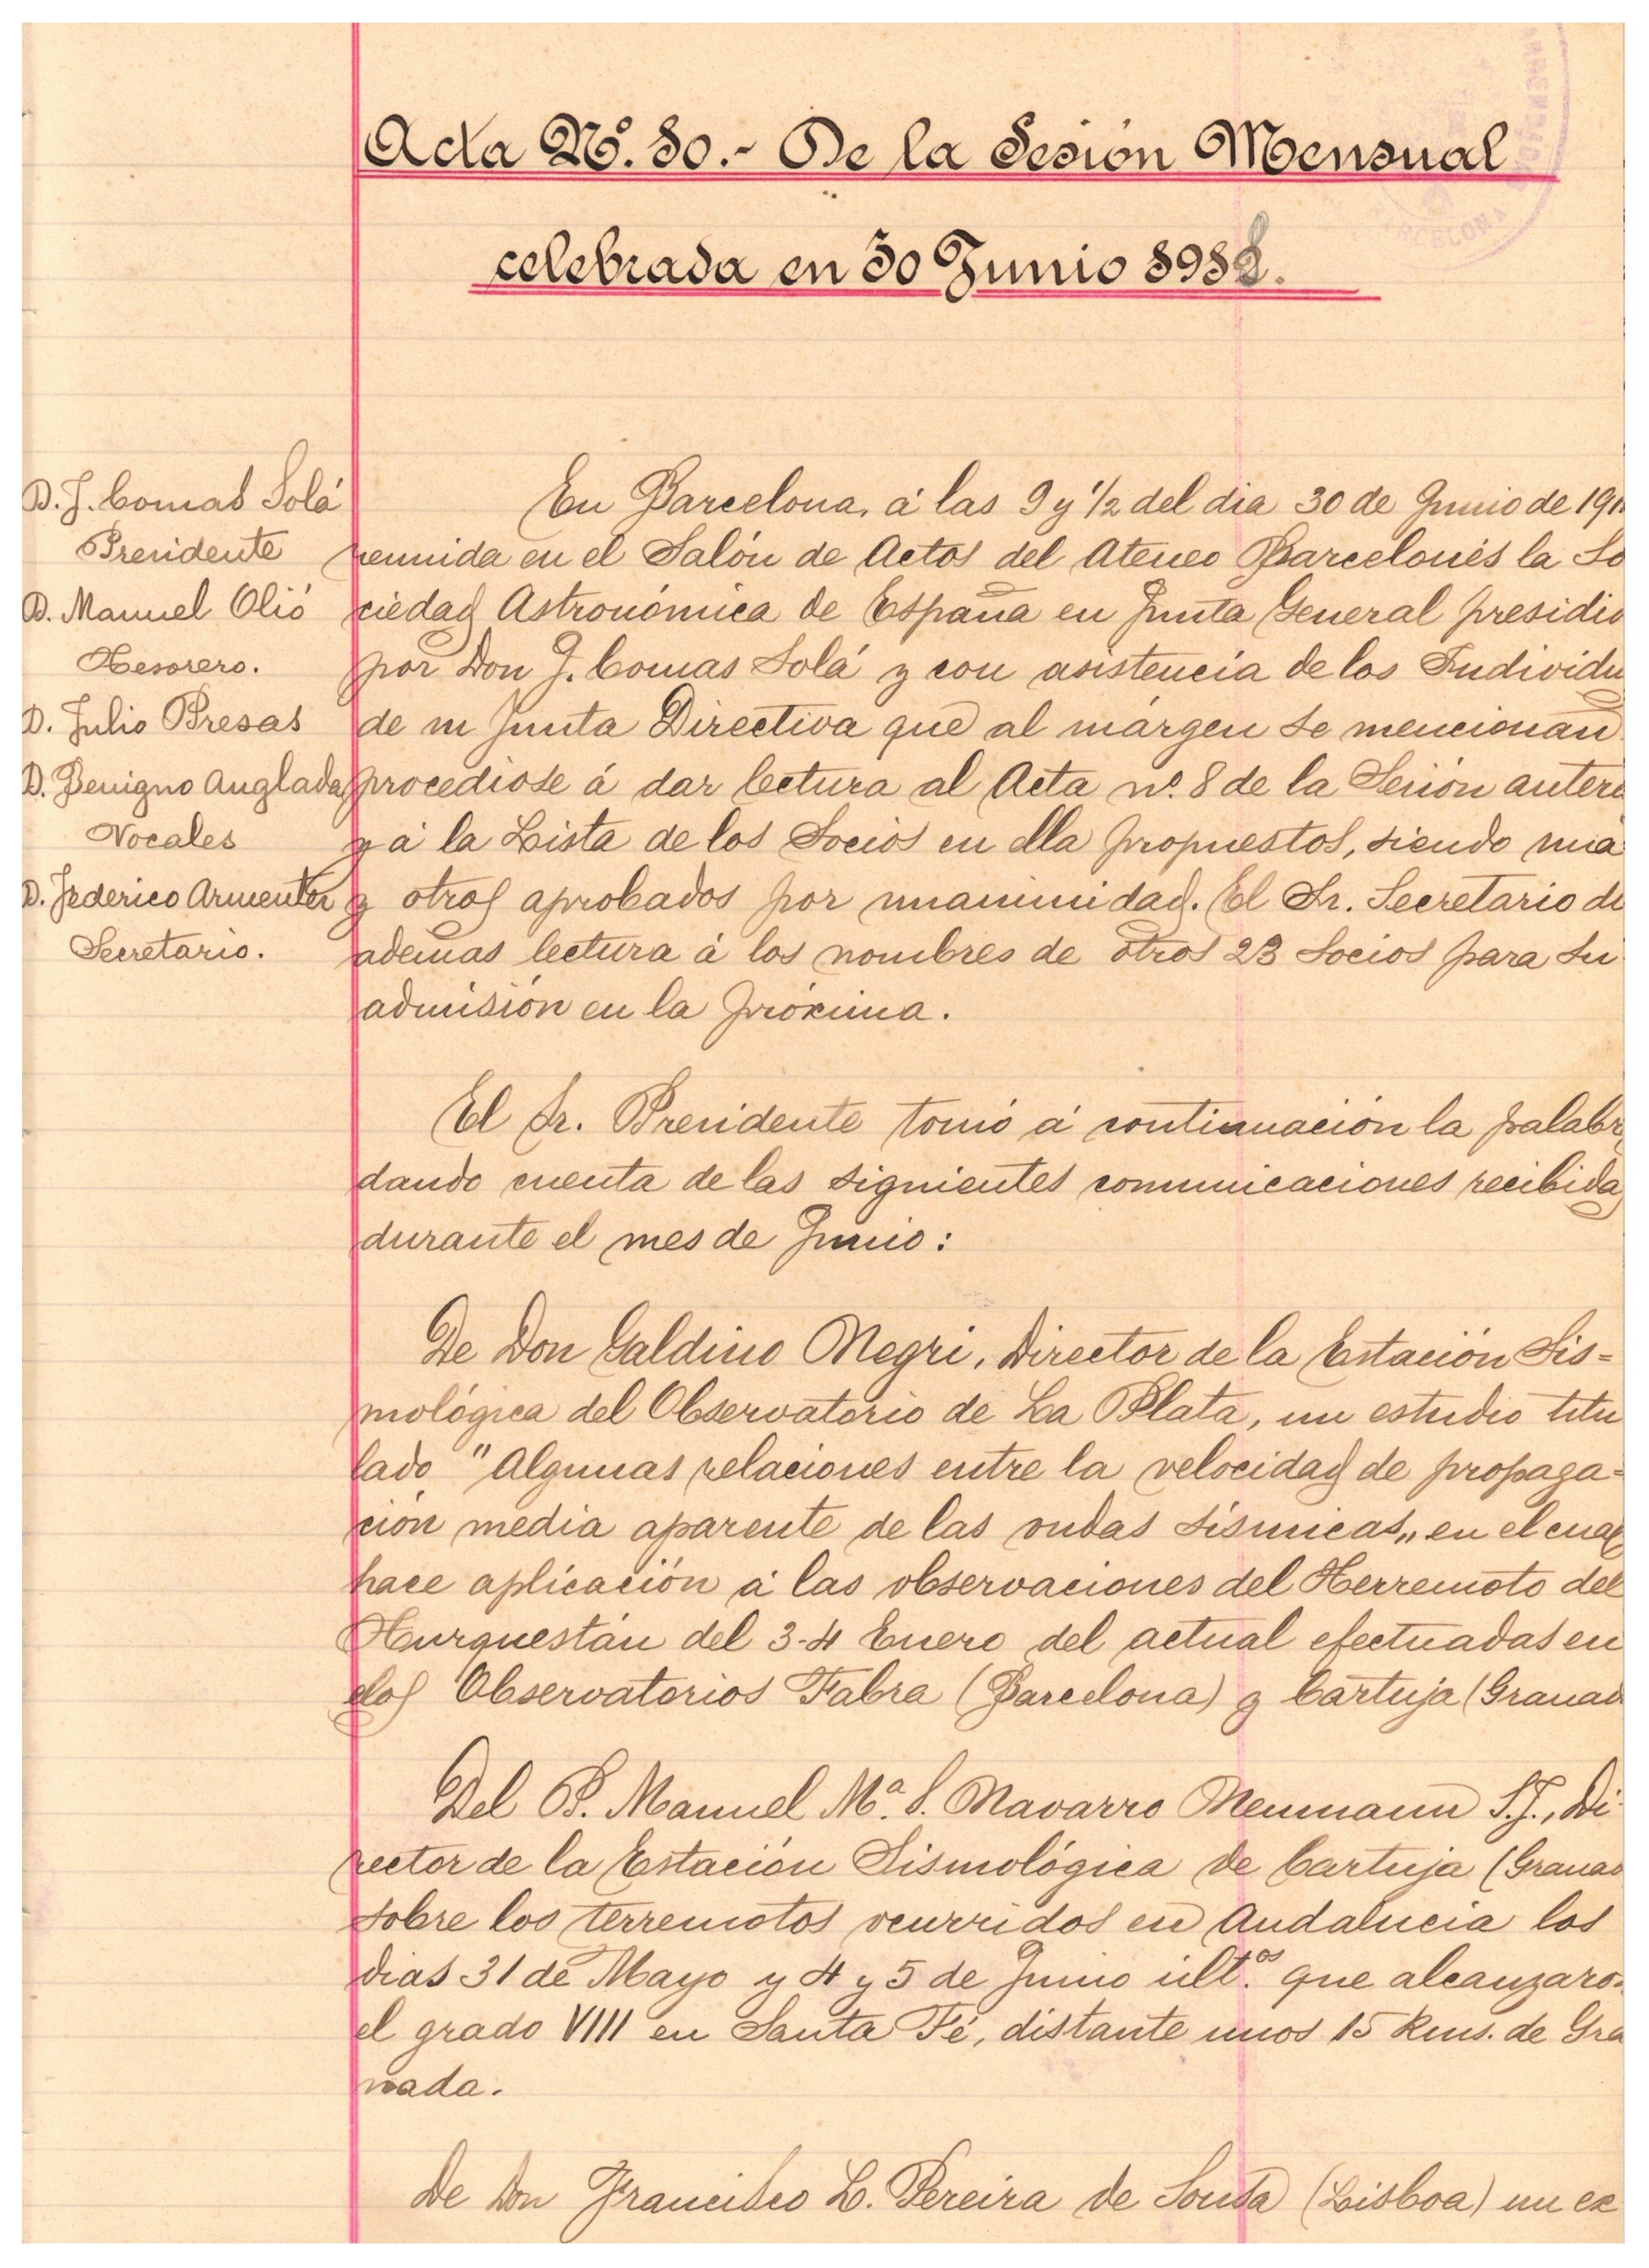 Acta Nº. 10.- De la Sesión Mensual
celebrada en 30 Junio 1911.
D. J. Comas Solá
Presidente
D. Manuel Olió
Tesorero.
D. Julio Bresas
D. Benigno Anglada
Vocales
D. Federico Armenter
Secretario.
En Barcelona, á las 9 y 1/2 del dia 30 de Junio de 191
reunida en el Salón de Actos del Ateneo Barcelonés la So
ciedad Astronómica de España en Junta General presidid
por Don J. Comas Solá y con asistencia de los Individu
de su Junta Directiva que al márgen se mencionan
procediose á dar lectura al Acta nº. 8 de la Sesión anteri
y á la Lista de los Socios en ella propuestos, siendo una
y otros aprobados por unanimidad. El Sr. Secretario di
ademas lectura á los nombres de otros 23 Socios para su
admisión en la próxima.
El Sr. Presidente tomó á continuación la palabr
dando cuenta de las siguientes comunicaciones recibida
durante el mes de Junio:
De Don Galdino Negri, Director de la Estación Sis=
mológica del Observatorio de La Plata, un estudio titu
lado "Algunas relaciones entre la velocidad de propaga=
ción media aparente de las ondas sísmicas„ en el cual
hace aplicación á las observaciones del Terremoto del
Turquestán del 3-4 Enero del actual efectuadas en
los Observatorios Fabra (Barcelona) y Cartuja (Granad
Del P. Manuel Mª. S. Navarro Neumann S.J., Di-
rector de la Estación Sismológica de Cartuja (Granad
sobre los terremotos ocurridos en Andalucia los
dias 31 de Mayo y 4 y 5 de Junio últ.os que alcanzaro
el grado VIII en Santa Fé, distante unos 15 kms. de Gra
nada.
De Don Francisco L. Pereira de Sousa (Lisboa) un ex